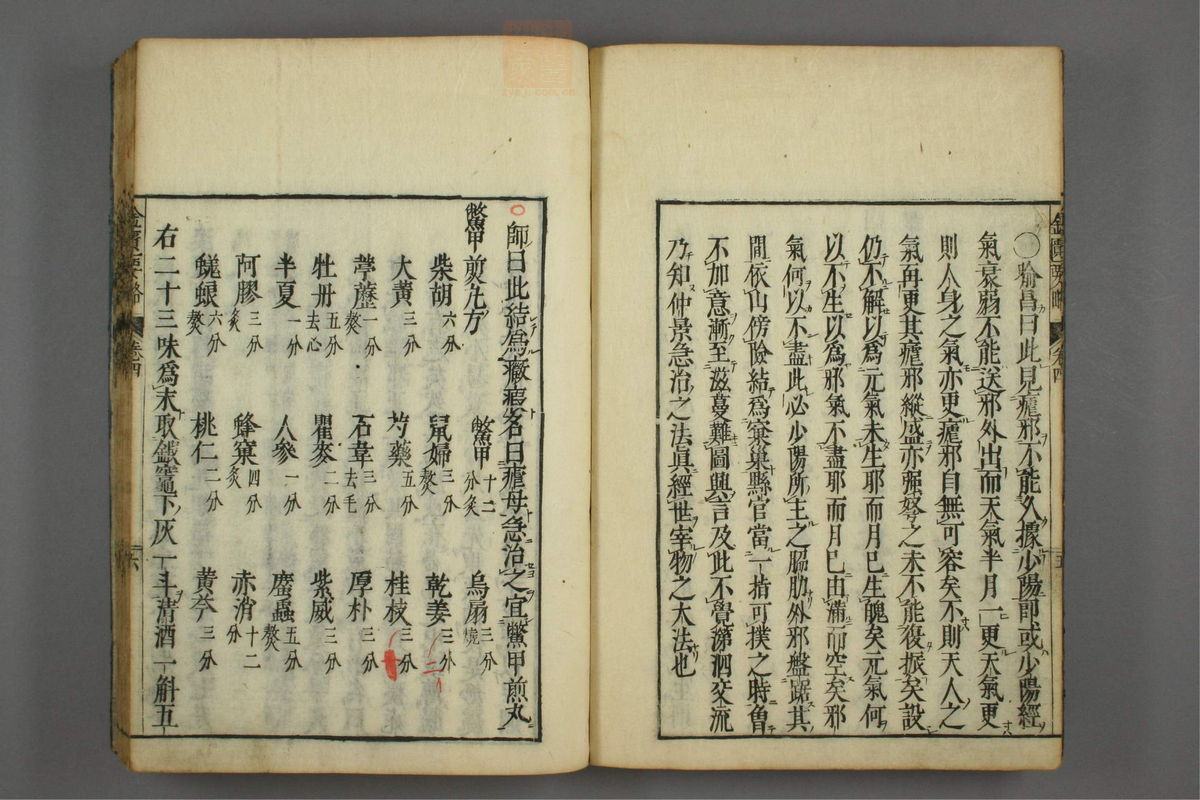 ○喻昌曰此見瘧邪不能久據少陽即或少陽經
氣衰弱不能送邪外出而天氣半月一更天氣更
則人身之氣亦更瘧邪自無可容矣不則天人之
氣再更其瘧邪縱盛亦强弩之末不能復振矣設
仍不解以爲元氣未生耶而月已生魄矣元氣何
以不生以爲邪氣不盡耶而月已由滿而空矣邪
氣何以不盡此必少陽所主之脇肋外邪盤踞其
間依山傍險結爲窠巢縣官當一指可撲之時曾
不加意漸至滋蔓難圖興言及此不覺涕泗交流
乃知仲景急治之法眞經世宰物之大法也
○師曰此結爲癥瘕名曰瘧母急治之宜鱉甲煎丸
鱉甲煎丸方 鱉甲十二分炙 烏扇三分燒
柴胡六分 鼠婦三分熬 乾姜三分
大黃三分 芍藥五分 桂枝三分
葶藶一分熬 石韋三分去毛 厚朴三分
牡丹五分去心 瞿麥二分 紫威三分
半夏一分 人參一分 䗪蟲五分熬
阿膠三分炙 蜂窠四分炙 赤消十二分
蜣蜋六分熬 桃仁二分 黃芩三分
右二十三味爲末取鍛竈下灰一斗清酒一斛五
金匱要略 卷四 六